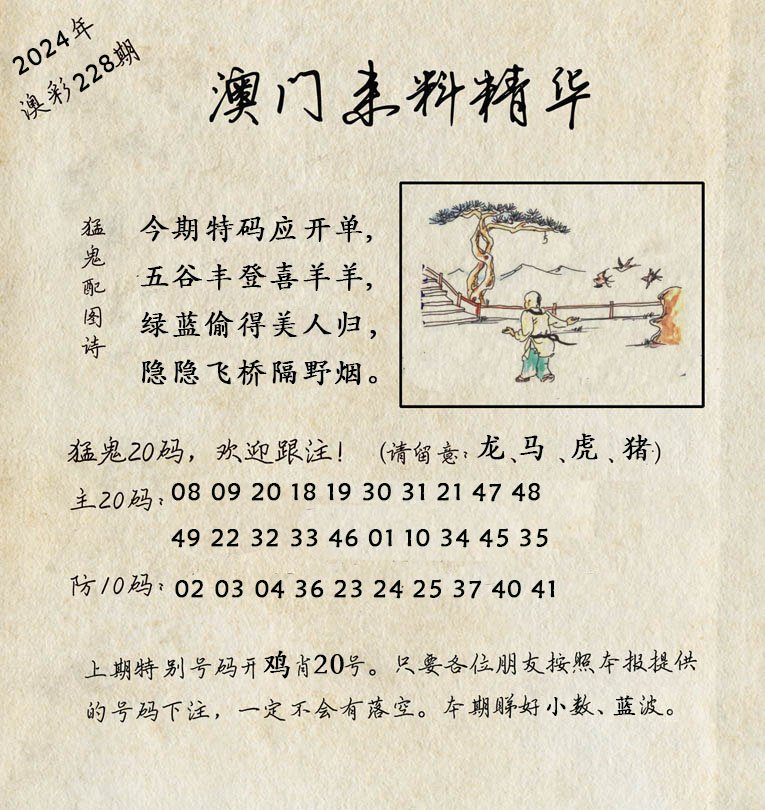 2024年
澳彩228期
澳门来料精华
猛鬼配图诗
今期特码应开单，
五谷丰登喜羊羊，
绿蓝偷得美人归，
隐隐飞桥隔野烟。
猛鬼20码，欢迎跟注！（请留意：龙、马、虎、猪）
主20码：08 09 20 18 19 30 31 21 47 48
49 22 32 33 46 01 10 34 45 35
防10码：02 03 04 36 23 24 25 37 40 41
上期特别号码开鸡肖20号。只要各位朋友按照本报提供
的号码下注，一定不会有落空。本期睇好小数、蓝波。